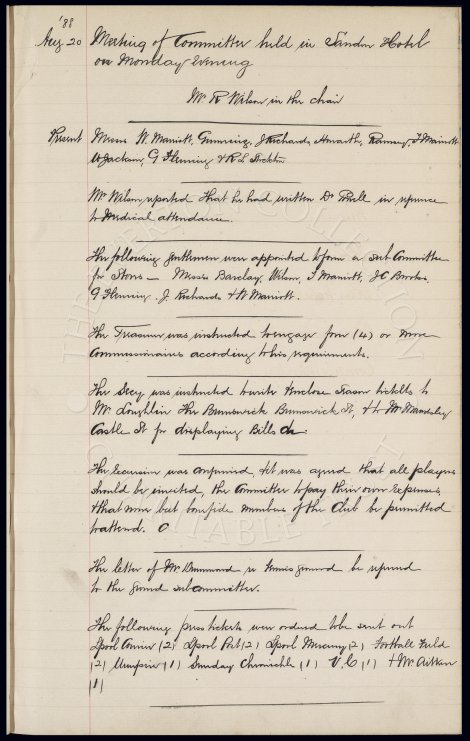 '88
Aug 20 Meeting of Committee held in Sandon Hotel
on Monday Evening
Mr R Wilson in the chair
Present Messrs W. Marriott, Gunning, J Richards, Howarth, Ramsey, F Marriott
W Jackson, G Fleming & R L Stockton
Mr Wilson reported that he had written Dr in reference
to Medical attendance.
The following gentlemen were appointed to form a sub Committee
for Stores — Messrs Barclay, Wilson, F Marriott, J C Brooks,
G Fleming, J Richards & W Marriott.
The Treasurer was instructed to engage four (4) or more
Commissionaires according to his requirements.
The Secy was instructed to write & enclose Season tickets to
Mr Loughlin The Brunswick Brunswick St, & to Mr Wamsley
Castle St for displaying Bills &c
The Excursion was confirmed, & it was agreed that all players
should be invited, the Committee to pay their own Expenses
& that none but bonafide members of the Club be permitted
to attend.
The letter of Mr Drummond re tennis ground be referred
to the Ground subcommittee.
The following press tickets were ordered to be sent out
Lpool Courier (2) Lpool Post (2) Lpool Mercury (2) Football Field
(2) Umpire (1) Sunday Chronicle (1) V. C (1) & Mr Aitken
(1)
THE COLLECTION
CHARITABLE